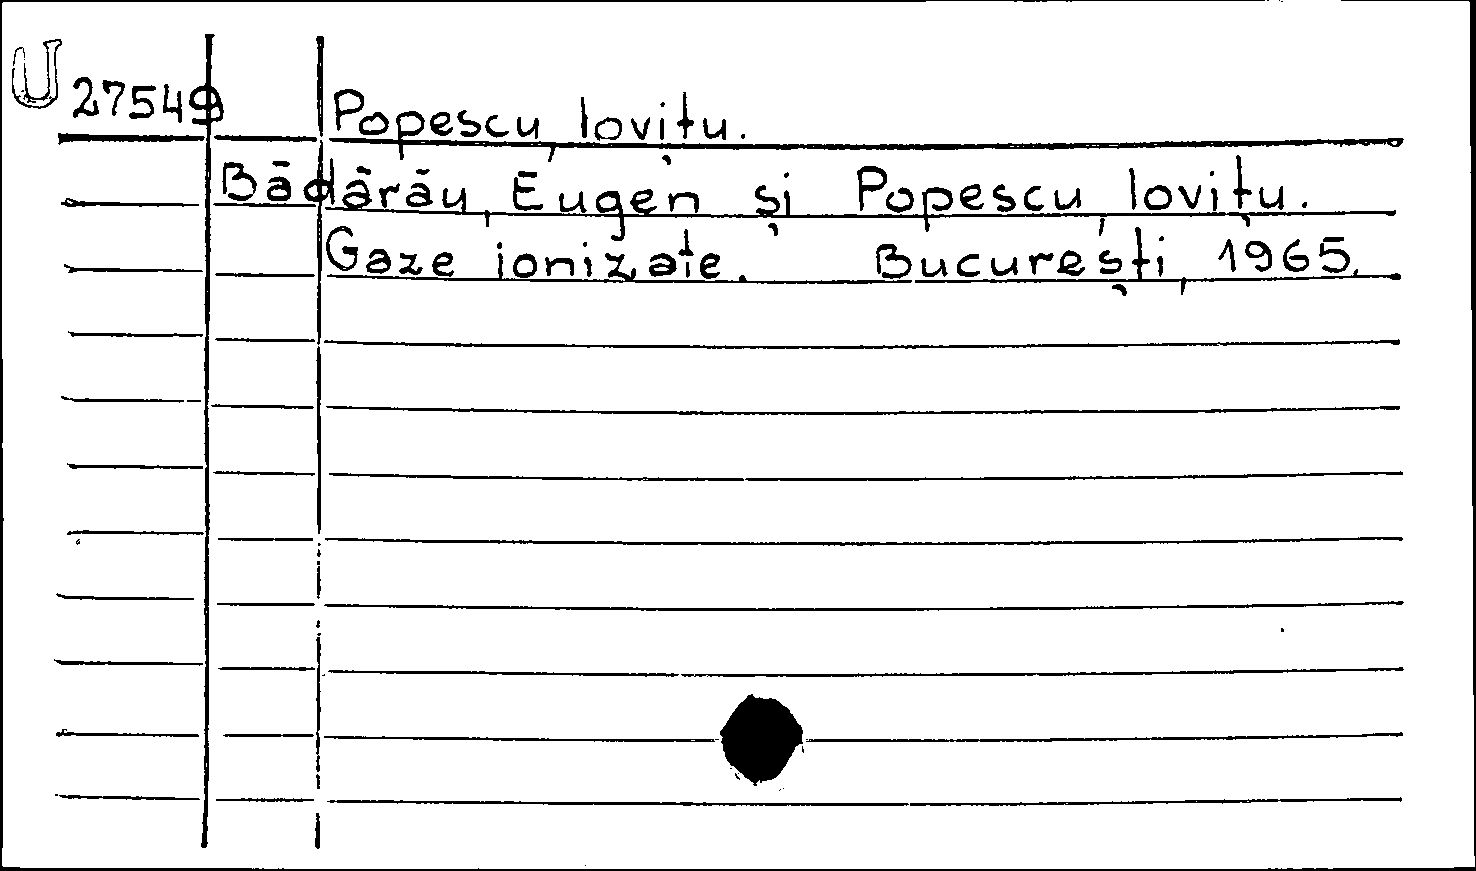 U 27549 Popescu, Iovițu.
Bādārāu, Eugen și Popescu, Iovițu.
Gaze ionizate. București, 1965.